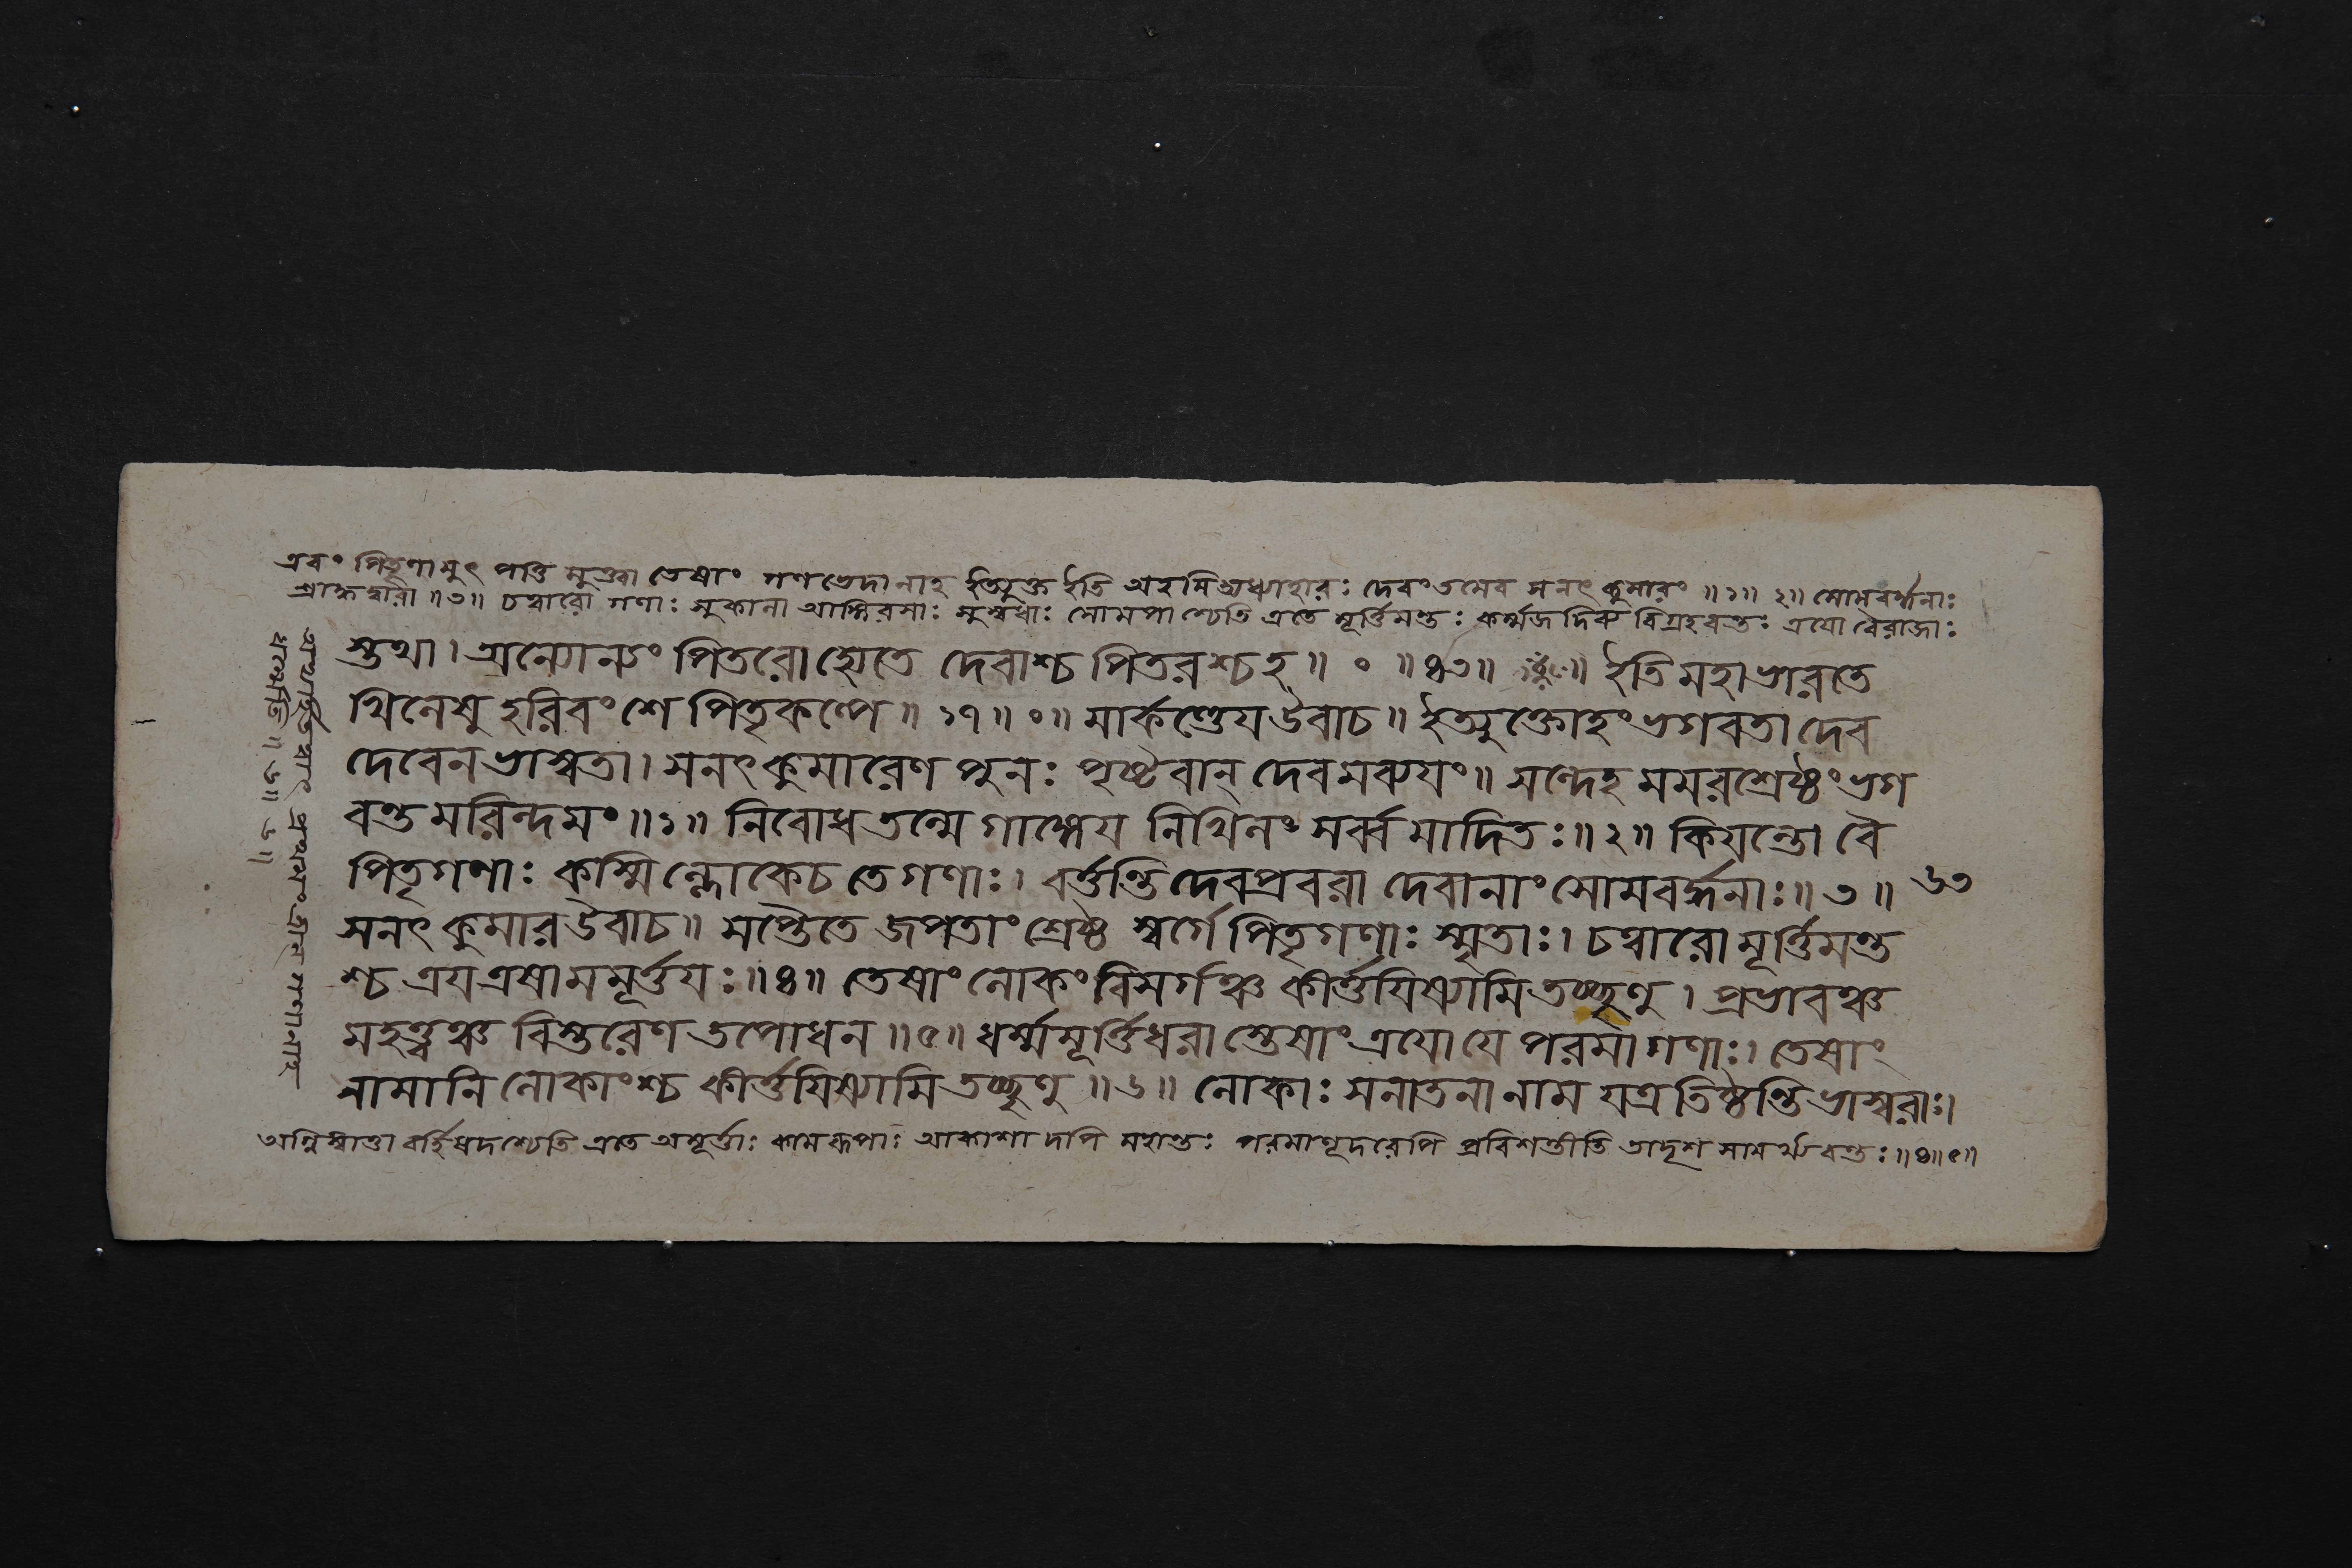 এবং পিতৄণামুৎপত্তিমুক্ত্বা তেষাং গণভেদানাহ ইত্যুক্ত ইতি অহমিত্যধ্যাহারঃ দেবং তমেব সনৎকুমারং ॥১॥ ২॥ সোমবর্দ্ধনাঃ
শ্রাদ্ধদ্বারা ॥৩॥ চত্বারো গণাঃ সুকালা আঙ্গিরসাঃ সুস্বধাঃ সোমপাশ্চেতি এতে মূর্ত্তিমন্তঃ কর্ম্মজদিব্যবিগ্রহবন্তঃ ত্রয়ো বৈরাজাঃ
স্তথা। অন্যোন্যং পিতরো হ্যেতে দেবাশ্চ পিতরশ্চ হ॥ ॰ ॥৪৩॥ ইতি মহাভারতে
খিলেষু হরিবংশে পিতৃকল্পে॥ ১৭॥ ॰॥ মার্কণ্ডেয় উবাচ॥ ইত্যুক্তোহং ভগবতা দেব
দেবেন ভাস্বতা। সনৎকুমারেণ পুনঃ পৃষ্টবান্ দেবমব্যয়ং॥ সন্দেহমমরশ্রেষ্ঠং ভগ
বন্তমরিন্দমং॥১॥ নিবোধ তন্মে গাঙ্গেয় নিখিলং সর্ব্বমাদিতঃ॥২॥ কিয়ন্তো বৈ
পিতৃগণাঃ কস্মিন্লোকে চ তে গণাঃ। বর্ত্তন্তি দেবপ্রবরা দেবানাং সোমবর্দ্ধনাঃ॥৩॥ ৬৩
সনৎকুমার উবাচ॥ সপ্তৈতে জপতাং শ্রেষ্ঠ স্বর্গে পিতৃগণাঃ স্মৃতাঃ। চত্বারো মূর্ত্তিমন্ত
শ্চ ত্রয়ত্রষামমূর্ত্তয়ঃ॥৪॥ তেষাং লোকং বিসর্গঞ্চ কীর্ত্তয়িষ্যামি তচ্ছৃণু। প্রভাবঞ্চ
মহত্ত্বঞ্চ বিস্তরেণ তপোধন॥৫॥ ধর্ম্মমূর্ত্তিধরাস্তেষাং ত্রয়ো যে পরমা গণাঃ। তেষাং
নামানি লোকাংশ্চ কীর্ত্তয়িষ্যামি তচ্ছৃণু॥৬॥ লোকাঃ সনাতনা নাম যত্র তিষ্ঠন্তি ভাস্বরাঃ।
অগ্নিস্বাত্তা বর্হিষদশ্চেতি এতে অমূর্ত্তাঃ কামরূপাঃ আকাশাদপি মহান্তঃ পরমাণূদরেপি প্রবিশন্তীতি তাদৃশসামর্থ্যবন্তঃ॥৪॥৫॥